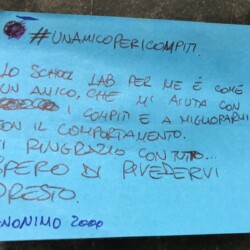 #UNAMICOPERICOMPITI
LO SCHOOL LAB PER ME È COME
UN AMICO, CHE MI AIUTA CON
I COMPITI E A MIGLIORARMI
CON IL COMPORTAMENTO.
VI RINGRAZIO CON TUTTO...
SPERO DI RIVEDERVI
PRESTO.
ANONIMO 2000